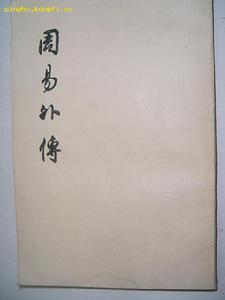 pinghu.kongfz.cn
周易外傳